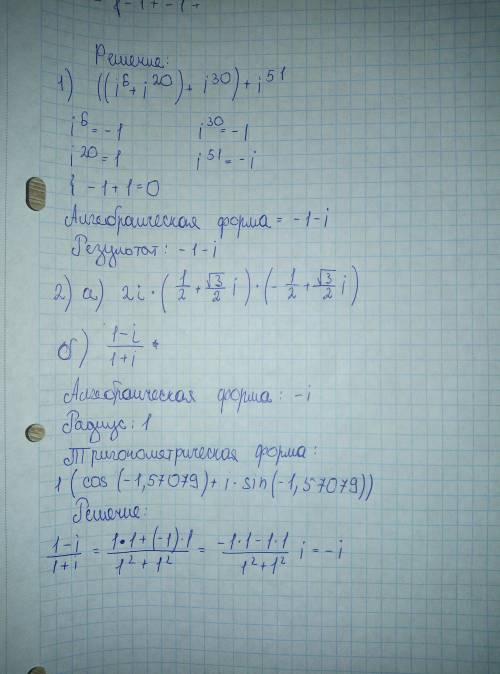 Решение:
1) ((i^6 + i^20) + i^30) + i^51
i^6 = -1 i^30 = -1
i^20 = 1 i^51 = -i
{ -1 + 1 = 0
Алгебраическая форма = -1-i
Результат: -1-i
2) а) 2i · (1/2 + √3/2 i) · (-1/2 + √3/2 i)
б) (1-i)/(1+i)
Алгебраическая форма: -i
Радиус: 1
Тригонометрическая форма:
1 (cos(-1,57079) + i · sin(-1,57079))
Решение:
(1-i)/(1+i) = (1·1+(-1)·1)/(1²+1²) = (-1·1-1·1)/(1²+1²) i = -i